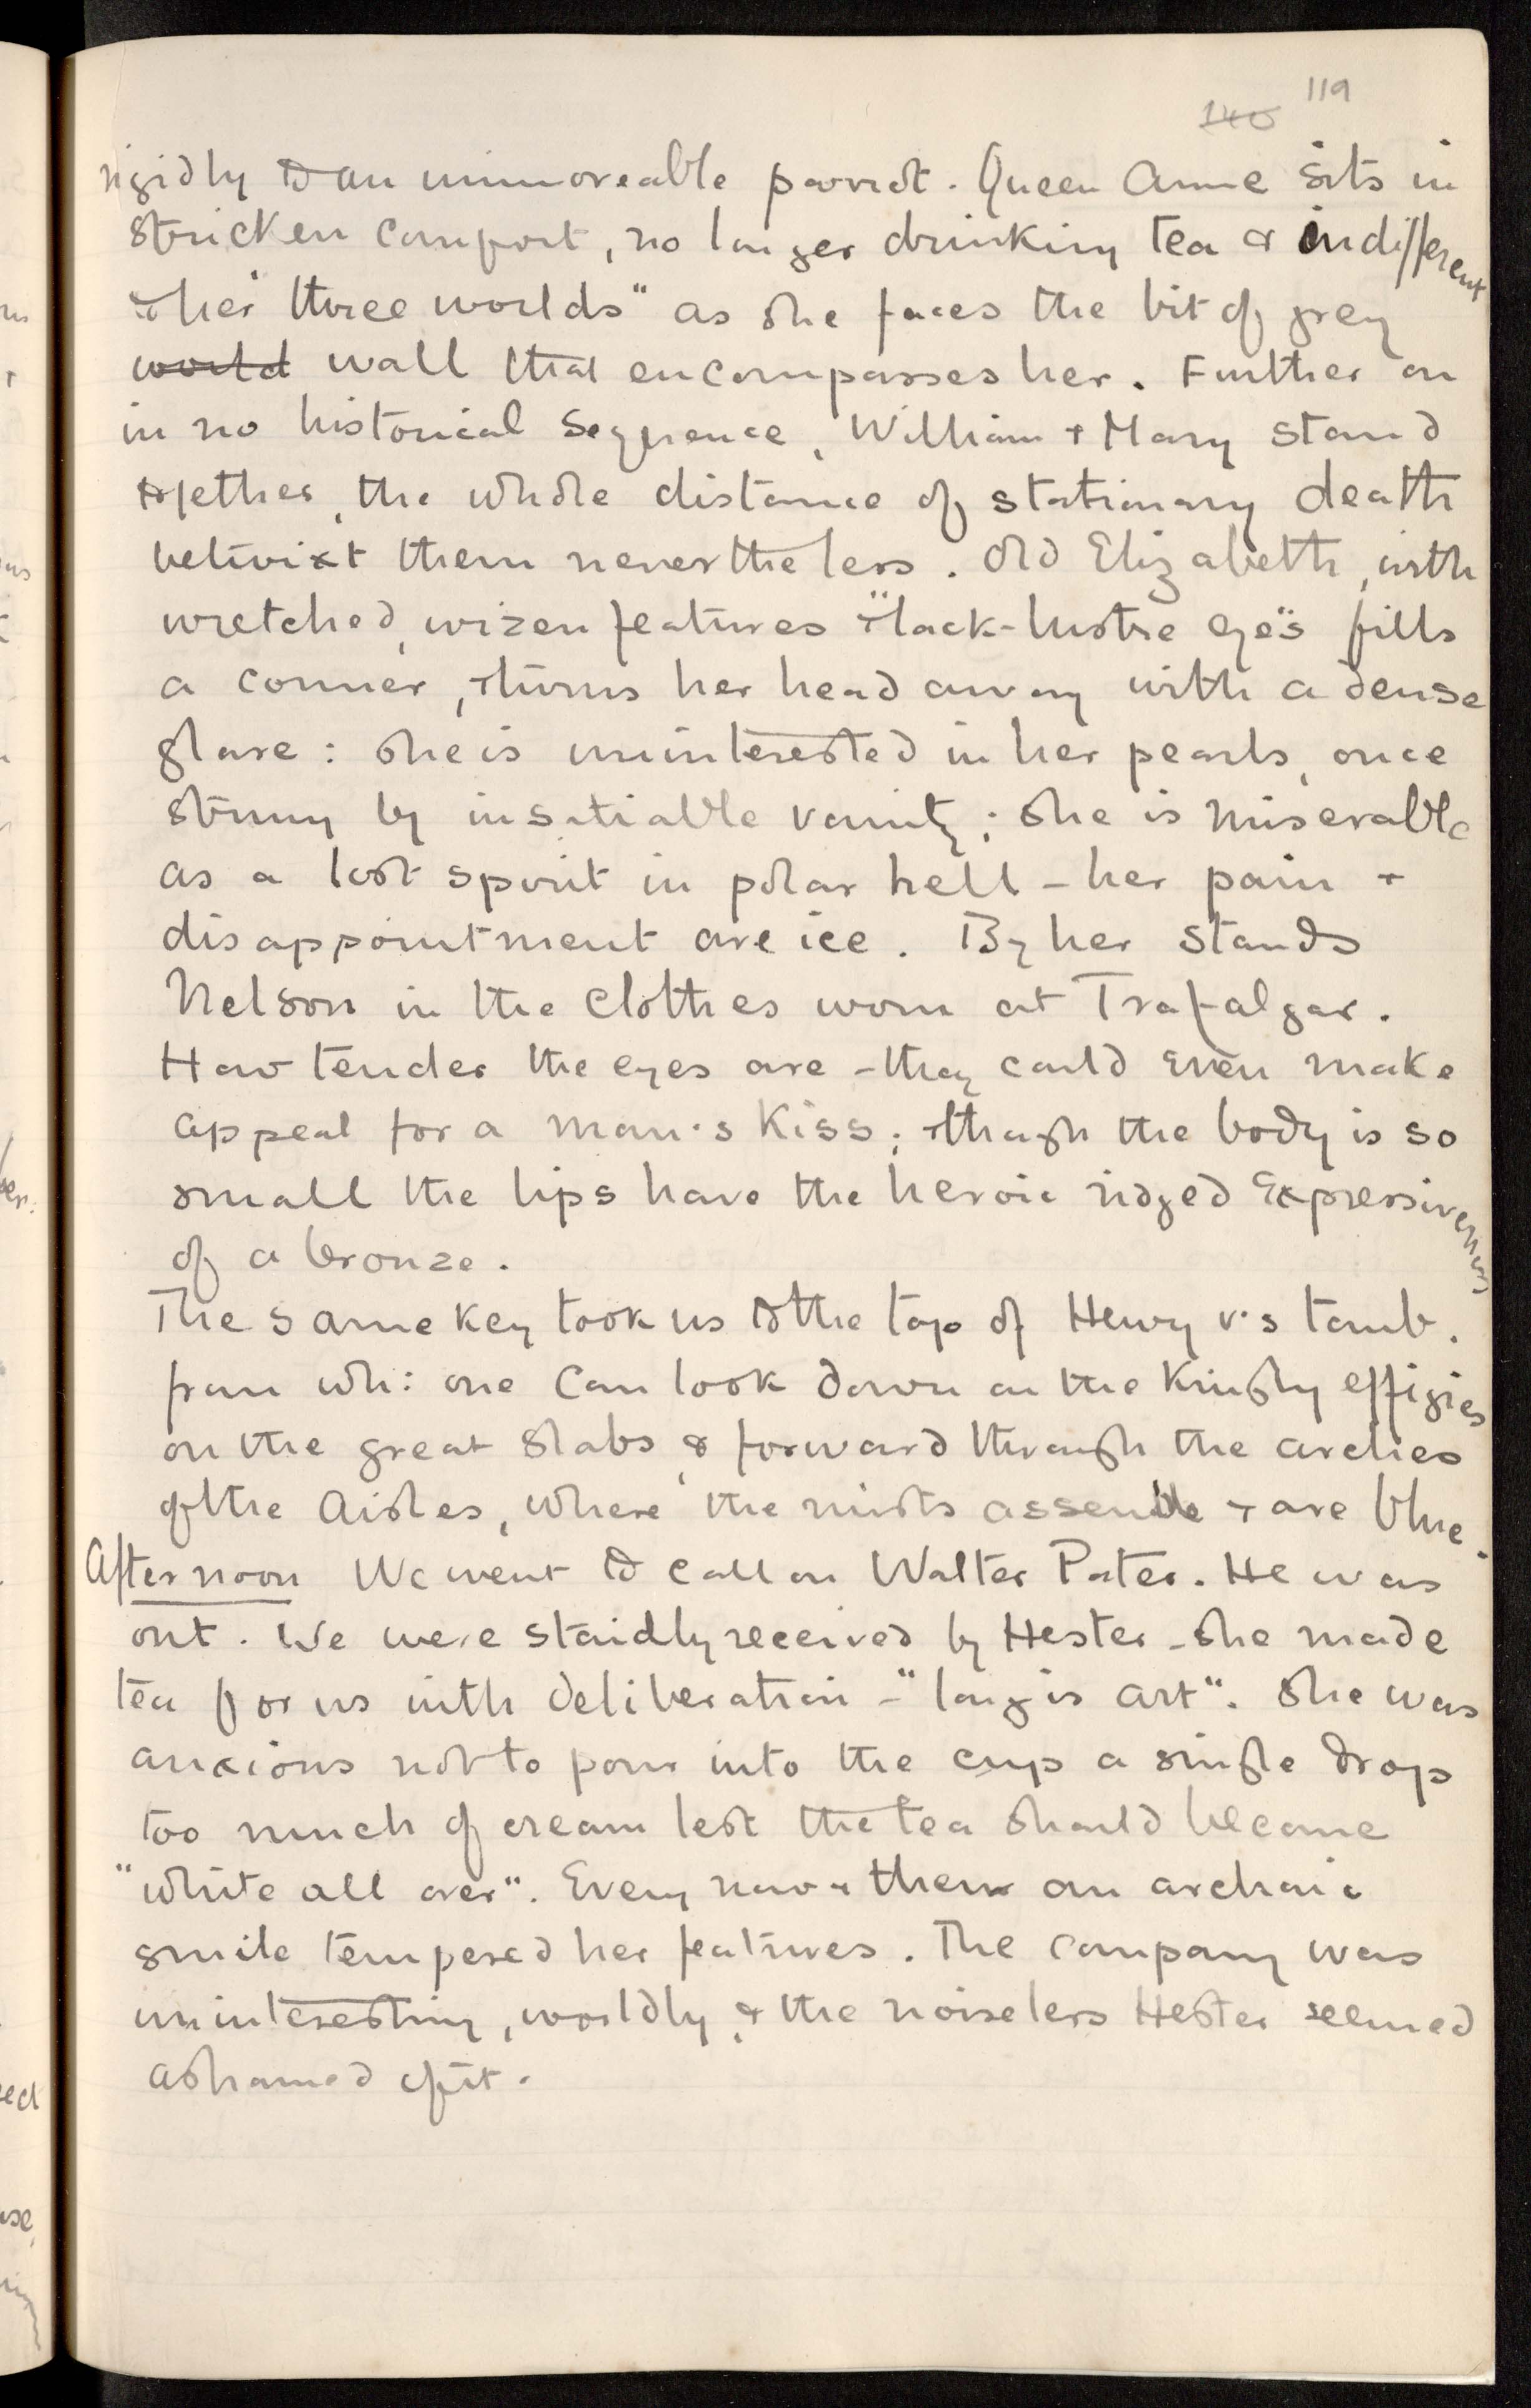 119
140
rigidly to an unmoveable parrot. Queen Anne sits in
stricken comfort, no longer drinking tea & indifferent
to her "three worlds" as she faces the bit of grey
world wall that encompasses her. Further on
in no historical sequence, William & Mary stand
together, the whole distance of stationary death
betwixt them nevertheless. Old Elizabeth, with
wretched, wizen features & "lack-lustre eyes" fills
a corner, & turns her head away with a dense
glare: she is uninterested in her pearls, once
strung by insatiable vanity; she is miserable
as a lost spirit in polar hell – her pain &
disappointment are ice. By her stands
Nelson in the clothes worn at Trafalgar.
How tender the eyes are – they could even make
appeal for a man's kiss; & though the body is so
small the lips have the heroic ridged expressiveness
of a bronze.
The same key took us to the top of Henry V's tomb.
from wh: one can look down on the Kingly effigies
on the great slabs, & forward through the arches
of the Aisles, where the mists assemble & are blue.
Afternoon We went to call on Walter Pater. He was
out. We were staidly received by Hester – she made
tea for us with deliberation – "long is art". She was
anxious not to pour into the cup a single drop
too much of cream lest the tea should become
"white all over". Every now & then an archaic
smile tempered her features. The company was
uninteresting, worldly, & the noiseless Hester seemed
ashamed of it.